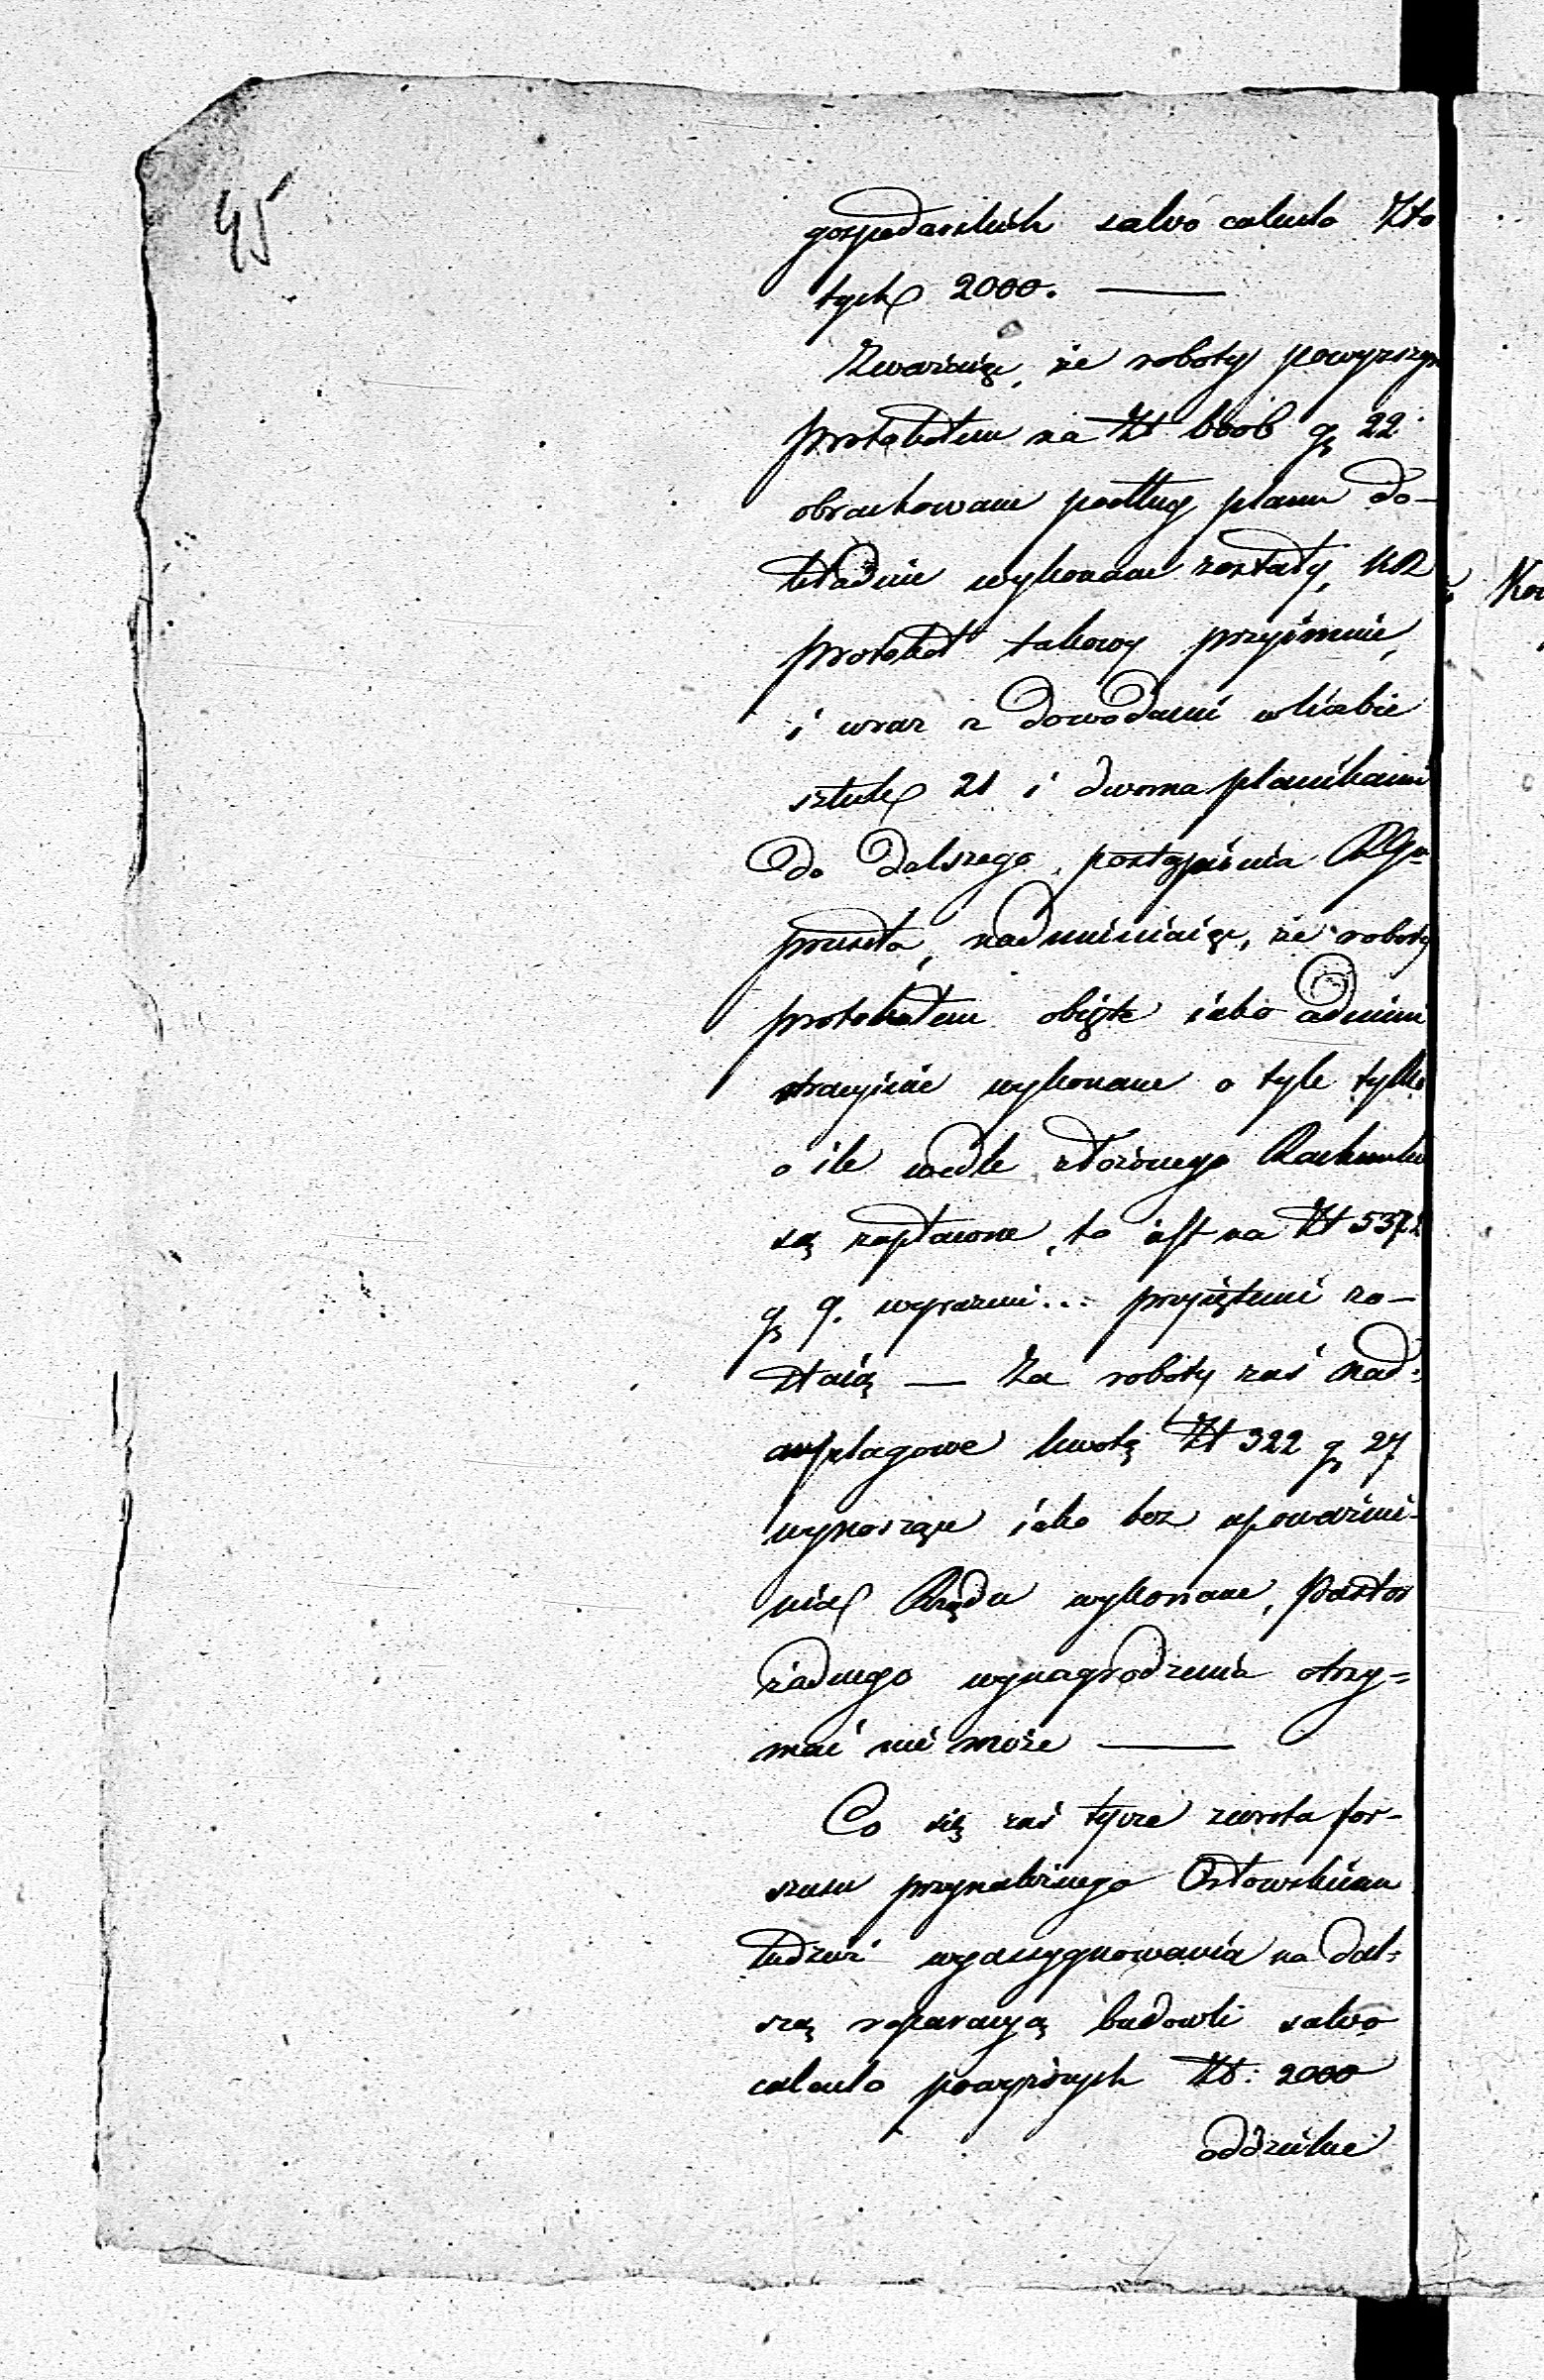 45
gospodarskich salvo calculo Zło
tych 2000. —
Zważaiąc, że roboty powyższym
protokółem na Zł 6006 gr 22
obrachowane podług planu do-
kładnie wykonane zostały, KR
protokół takowy przyimuie,
i wraz z dowodami w liczbie
sztuk 21 i dwoma planikami
do dalszego postąpienia RGo
przeseła, nadmieniaiąc, że roboty
protokółem obięte iako admini
stracyinie wykonane o tyle tylko
o ile wedle złożonego Rachunku
są zapłacone, to iest na Zł 5372
gr 9. wyrażmi... przyiętemi zo-
staią — Za roboty zaś nad-
anszlagowe kwotę Zł 322 gr 27
wynoszące iako bez upoważnie-
nia Rządu wykonane, Pastor
żadnego wynagrodzenia otrzy=
mać nie może —
Co się zaś tycze zwrotu for-
szusu przynależnego Osłowskiemu
tudzież wyassygnowania na dal-
szą reparacyą budowli salvo
calculo powyższych Zł: 2000
oddzielne